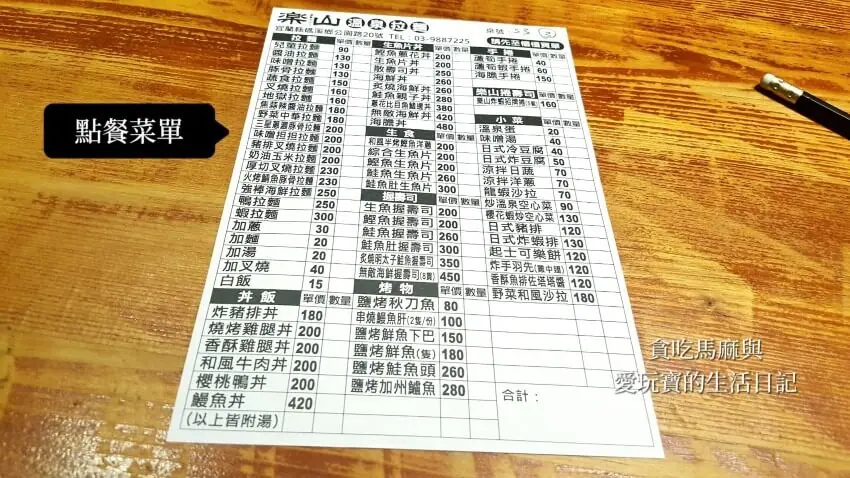 楽山 溫泉拉麵
宜蘭縣礁溪鄉公園路20號 TEL：03-9887225
桌號 53 ③
請先至櫃檯買單
點餐菜單
拉麵 單價 數量
兒童拉麵 90
醬油拉麵 130
味噌拉麵 130
豚骨拉麵 130
蔬食拉麵 150
叉燒拉麵 160
地獄拉麵 160
焦蒜辣醬油拉麵 160
野菜中華拉麵 180
三星蔥濃豚骨拉麵 200
味噌担担拉麵 200
豬排叉燒拉麵 200
奶油玉米拉麵 200
厚切叉燒拉麵 230
火烤鯖魚豚骨拉麵 230
強棒海鮮拉麵 250
鴨拉麵 250
蝦拉麵 300
加蔥 30
加麵 20
加湯 20
加叉燒 40
白飯 15
丼飯 單價 數量
炸豬排丼 180
燒烤雞腿丼 200
香酥雞腿丼 200
和風牛肉丼 200
櫻桃鴨丼 200
鰻魚丼 420
(以上皆附湯)
生魚片丼 單價 數量
鰹魚蔥花丼 200
生魚片丼 200
散壽司丼 250
海鮮丼 260
炙燒海鮮丼 260
鮭魚親子丼 280
蔥花比目魚鰭邊丼 380
無敵海鮮丼 420
海膽丼 480
生食 單價 數量
和風半烤鰹魚洋蔥 200
綜合生魚片 200
鰹魚生魚片 200
鮭魚生魚片 260
鮭魚肚生魚片 300
握壽司 單價 數量
生魚握壽司 200
鰹魚握壽司 200
鮭魚握壽司 260
鮭魚肚握壽司 300
炙燒明太子鮭魚握壽司 350
無敵海鮮握壽司(8貫) 450
烤物 單價 數量
鹽烤秋刀魚 80
串燒鰻魚肝(2隻/份) 100
鹽烤鮮魚下巴 150
鹽烤鮮魚(隻) 180
鹽烤鮭魚頭 260
鹽烤加州鱸魚 280
手捲 單價 數量
蘆筍手捲 40
蘆筍蝦手捲 60
海膽手捲 150
樂山捲壽司 單價 數量
160
小菜 單價 數量
溫泉蛋 20
味噌湯 40
日式冷豆腐 40
日式炸豆腐 50
涼拌日蔬 70
涼拌洋蔥 70
龍蝦沙拉 70
炒溫泉空心菜 90
櫻花蝦炒空心菜 130
日式豬排 120
日式炸蝦排 130
起士可樂餅 120
炸手羽先(雞中翅) 120
香酥魚排佐塔塔醬 120
野菜和風沙拉 180
合計：
貪吃馬麻與
愛玩寶的生活日記